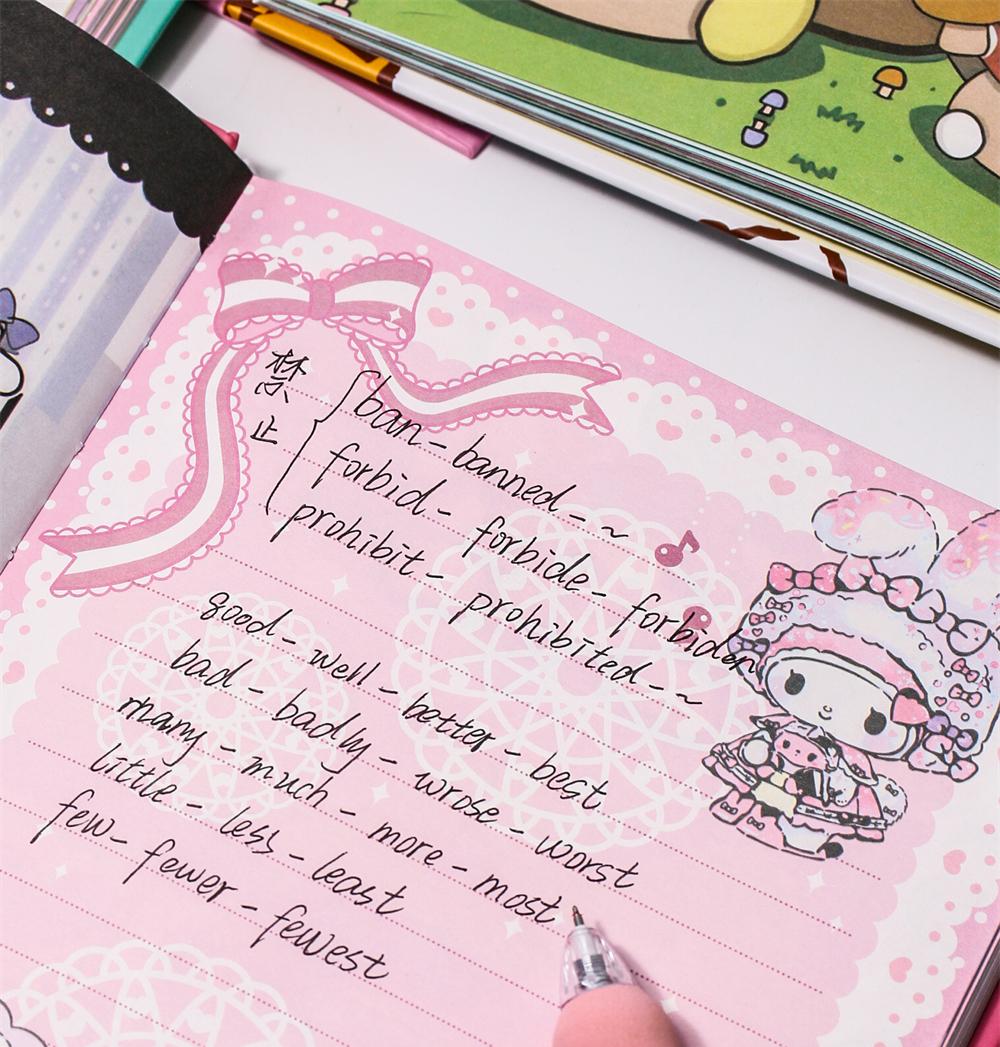 禁止
ban - banned - ~
forbid - forbide - forbiden
prohibit - prohibited - ~
good - well - better - best
bad - badly - wrose - worst
many - much - more - most
little - less - least
few - fewer - fewest